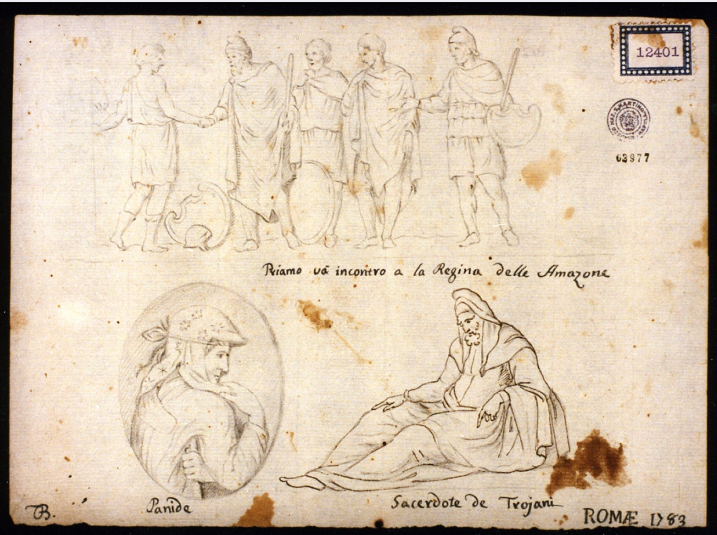 12401
62977
Priamo và incontro a la Regina delle Amazone
Panide
Sacerdote de Trojani
B.
ROMÆ 1783